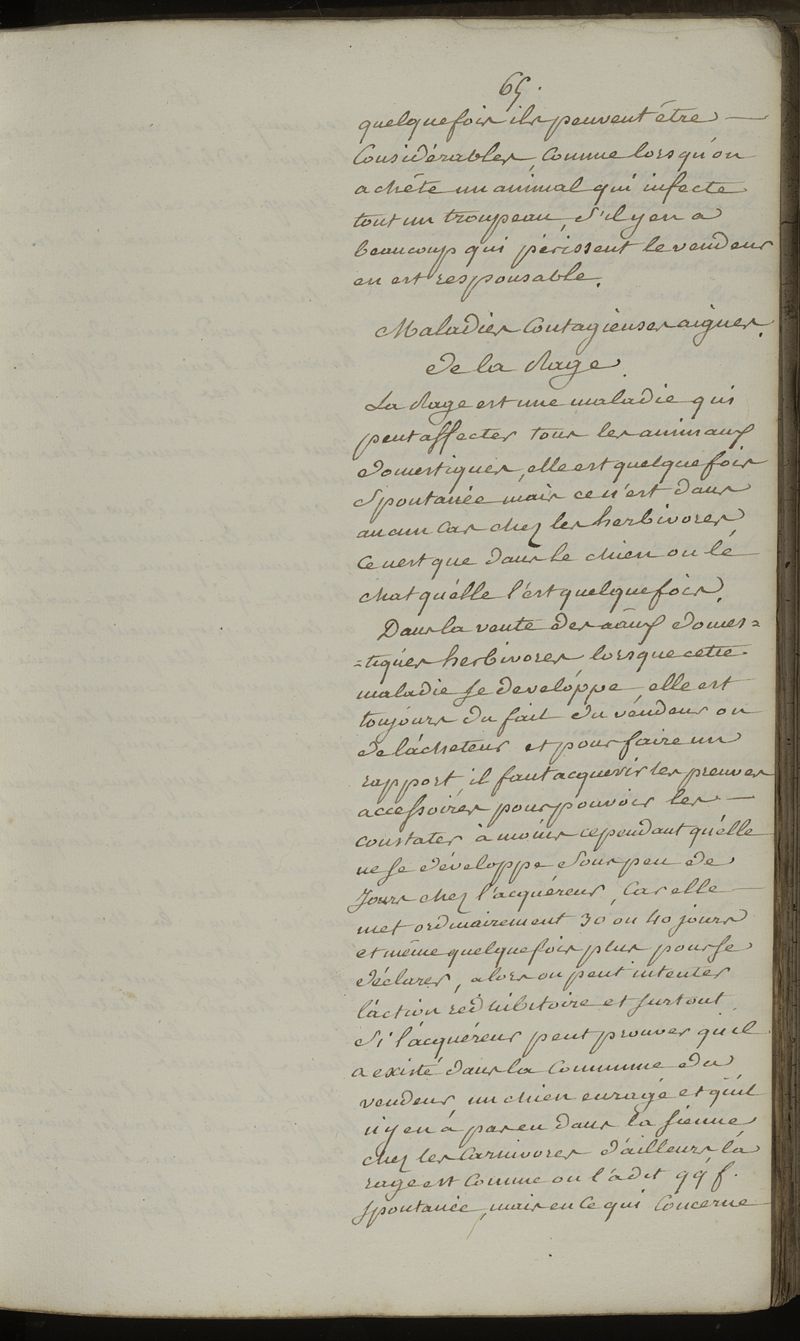 65.
quelquefois ils peuvent être —
Considérables, Comme lorsqu'on
achéte un animal qui infecte
tout un troupeau, S'il y en a
beaucoup qui périssent le vendeur
en est responsable.
Maladies Contagieuses aigues.
De la Rage.
La Rage est une maladie qui
peut affecter tous les animaux
Domestiques, elle est quelque fois
Spontanée mais ce n'est dans
aucun Cas chez les herbivores
Ce n'est que dans le chien ou lé
chat quélle l'est quelque fois.
Dans la vente des aãux Domes=
=tiques herbivores lorsque cette
maladie se developpe elle est
toujours du fait du véndeur ou
de lácheteur et pour faire un
rapport il faut acquerir les preuves
accessoires pour pouvoir les —
constater à moins cependant quélle
ne se développe Sous peu de
Jours chez l'acquéreur, Car elle —
met ordinairement 30 ou 40 jours
et même quelque fois plus pour se
déclarer, alors on peut intenter
l'action rédhibitoire et surtout
Si l'acquéreur peut prouver qu'il
a existé dans la Commune du
vendeur un chien enragé et qu'il
n'y en à pas eu dans la sienne
chez les Carnivores d'ailleurs la
rage est Comme on l'a dit qq f.
Spontanée, mais en Ce qui Concerne